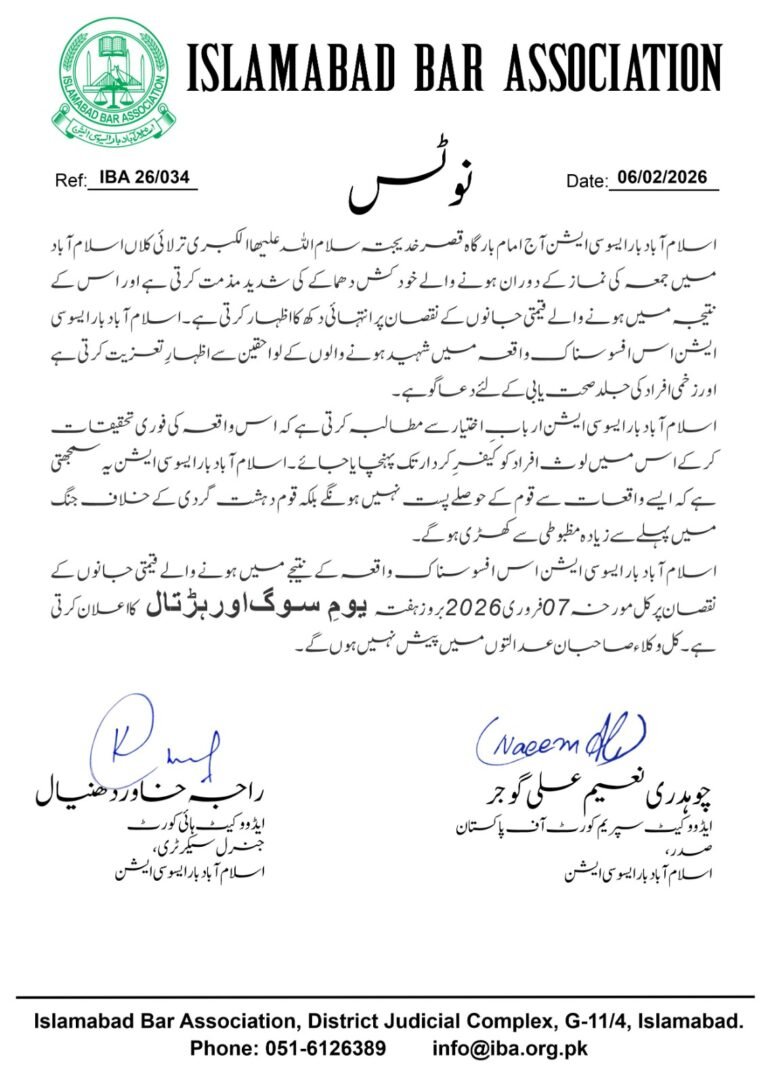 ISLAMABAD BAR ASSOCIATION
ISLAMABAD BAR ASSOCIATION
اسلام آباد بار ایسوسی ایشن
نوٹس
Ref: IBA 26/034
Date: 06/02/2026
اسلام آباد بار ایسوسی ایشن آج امام بارگاہ قصر خدیجتہ سلام اللہ علیھا الکبری ترلائی کلاں اسلام آباد
میں جمعہ کی نماز کے دوران ہونے والے خودکش دھماکے کی شدید مذمت کرتی ہے اور اس کے
نتیجہ میں ہونے والے قیمتی جانوں کے نقصان پر انتہائی دکھ کا اظہار کرتی ہے۔ اسلام آباد بار ایسوسی
ایشن اس افسوسناک واقعہ میں شہید ہونے والوں کے لواحقین سے اظہارِ تعزیت کرتی ہے
اور زخمی افراد کی جلد صحت یابی کے لئے دعا گو ہے۔
اسلام آباد بار ایسوسی ایشن اربابِ اختیار سے مطالبہ کرتی ہے کہ اس واقعہ کی فوری تحقیقات
کر کے اس میں لوث افراد کو کیفرِ کردار تک پہنچایا جائے۔ اسلام آباد بار ایسوسی ایشن یہ سمجھتی
ہے کہ ایسے واقعات سے قوم کے حوصلے پست نہیں ہونگے بلکہ قوم دہشت گردی کے خلاف جنگ
میں پہلے سے زیادہ مظبوطی سے کھڑی ہو گے۔
اسلام آباد بار ایسوسی ایشن اس افسوسناک واقعہ کے نتیجے میں ہونے والے قیمتی جانوں کے
نقصان پر کل مورخہ 07 فروری 2026 بروز ہفتہ یومِ سوگ اور ہڑتال کا اعلان کرتی
ہے۔ کل وکلاء صاحبان عدالتوں میں پیش نہیں ہوں گے۔
(Naeem Ali)
چوہدری نعیم علی گوجر
ایڈووکیٹ سپریم کورٹ آف پاکستان
صدر،
اسلام آباد بار ایسوسی ایشن
راجہ خاور دھنیال
ایڈووکیٹ ہائی کورٹ
جنرل سیکرٹری،
اسلام آباد بار ایسوسی ایشن
Islamabad Bar Association, District Judicial Complex, G-11/4, Islamabad.
Phone: 051-6126389 info@iba.org.pk